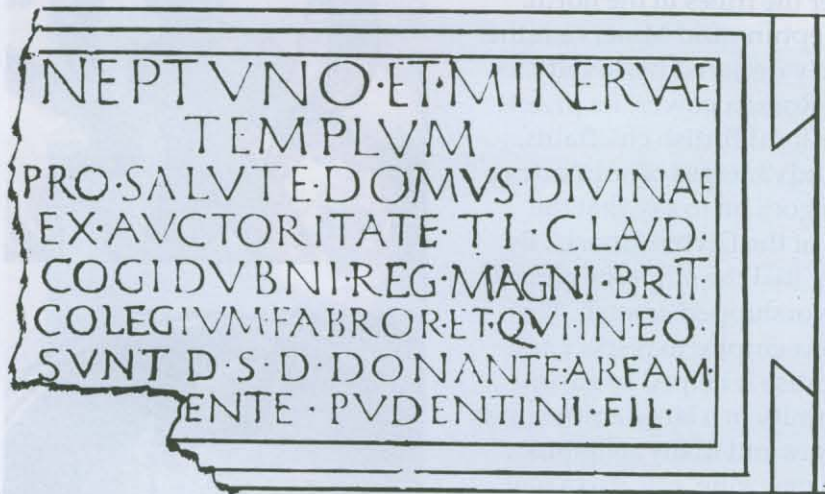 NEPTVNO·ET·MINERVAE
TEMPLVM
PRO·SALVTE·DOMVS·DIVINAE
EX·AVCTORITATE·TI·CLAVD·
COGIDVBNI·REG·MAGNI·BRIT
COLEGIVM·FABROR·ET·QVI·IN·EO·
SVNT D·S·D·DONANTE·AREAM·
ENTE·PVDENTINI FIL